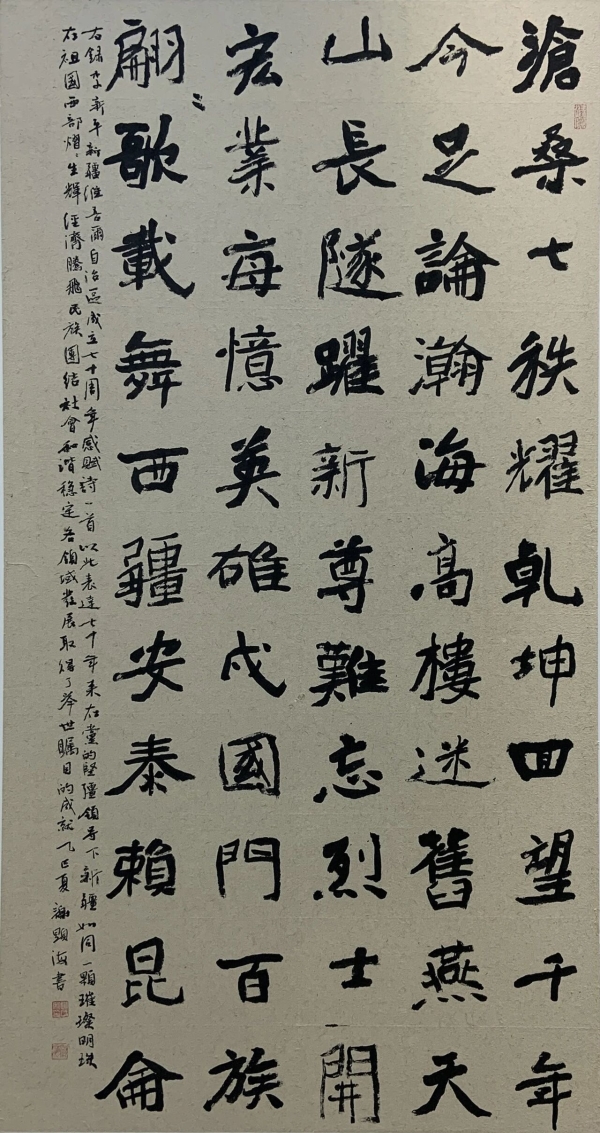 滄桑七秩耀乾坤回望千年
今足論瀚海高樓迷舊燕天
山長隧躍新尊難忘烈士開
宏業每憶英雄戍國門百族
翩〻歌載舞西疆安泰賴昆侖
右録李新平新疆維吾爾自治區成立七十周年感賦詩一首以此表達七十年来在黨的堅疆領导下新疆如同一顆璀璨明珠
在祖國西部熠〻生輝經濟騰飛民族團结社會和諧穩定各領域發展取得了举世矚目的成就乙巳夏謝顯海書